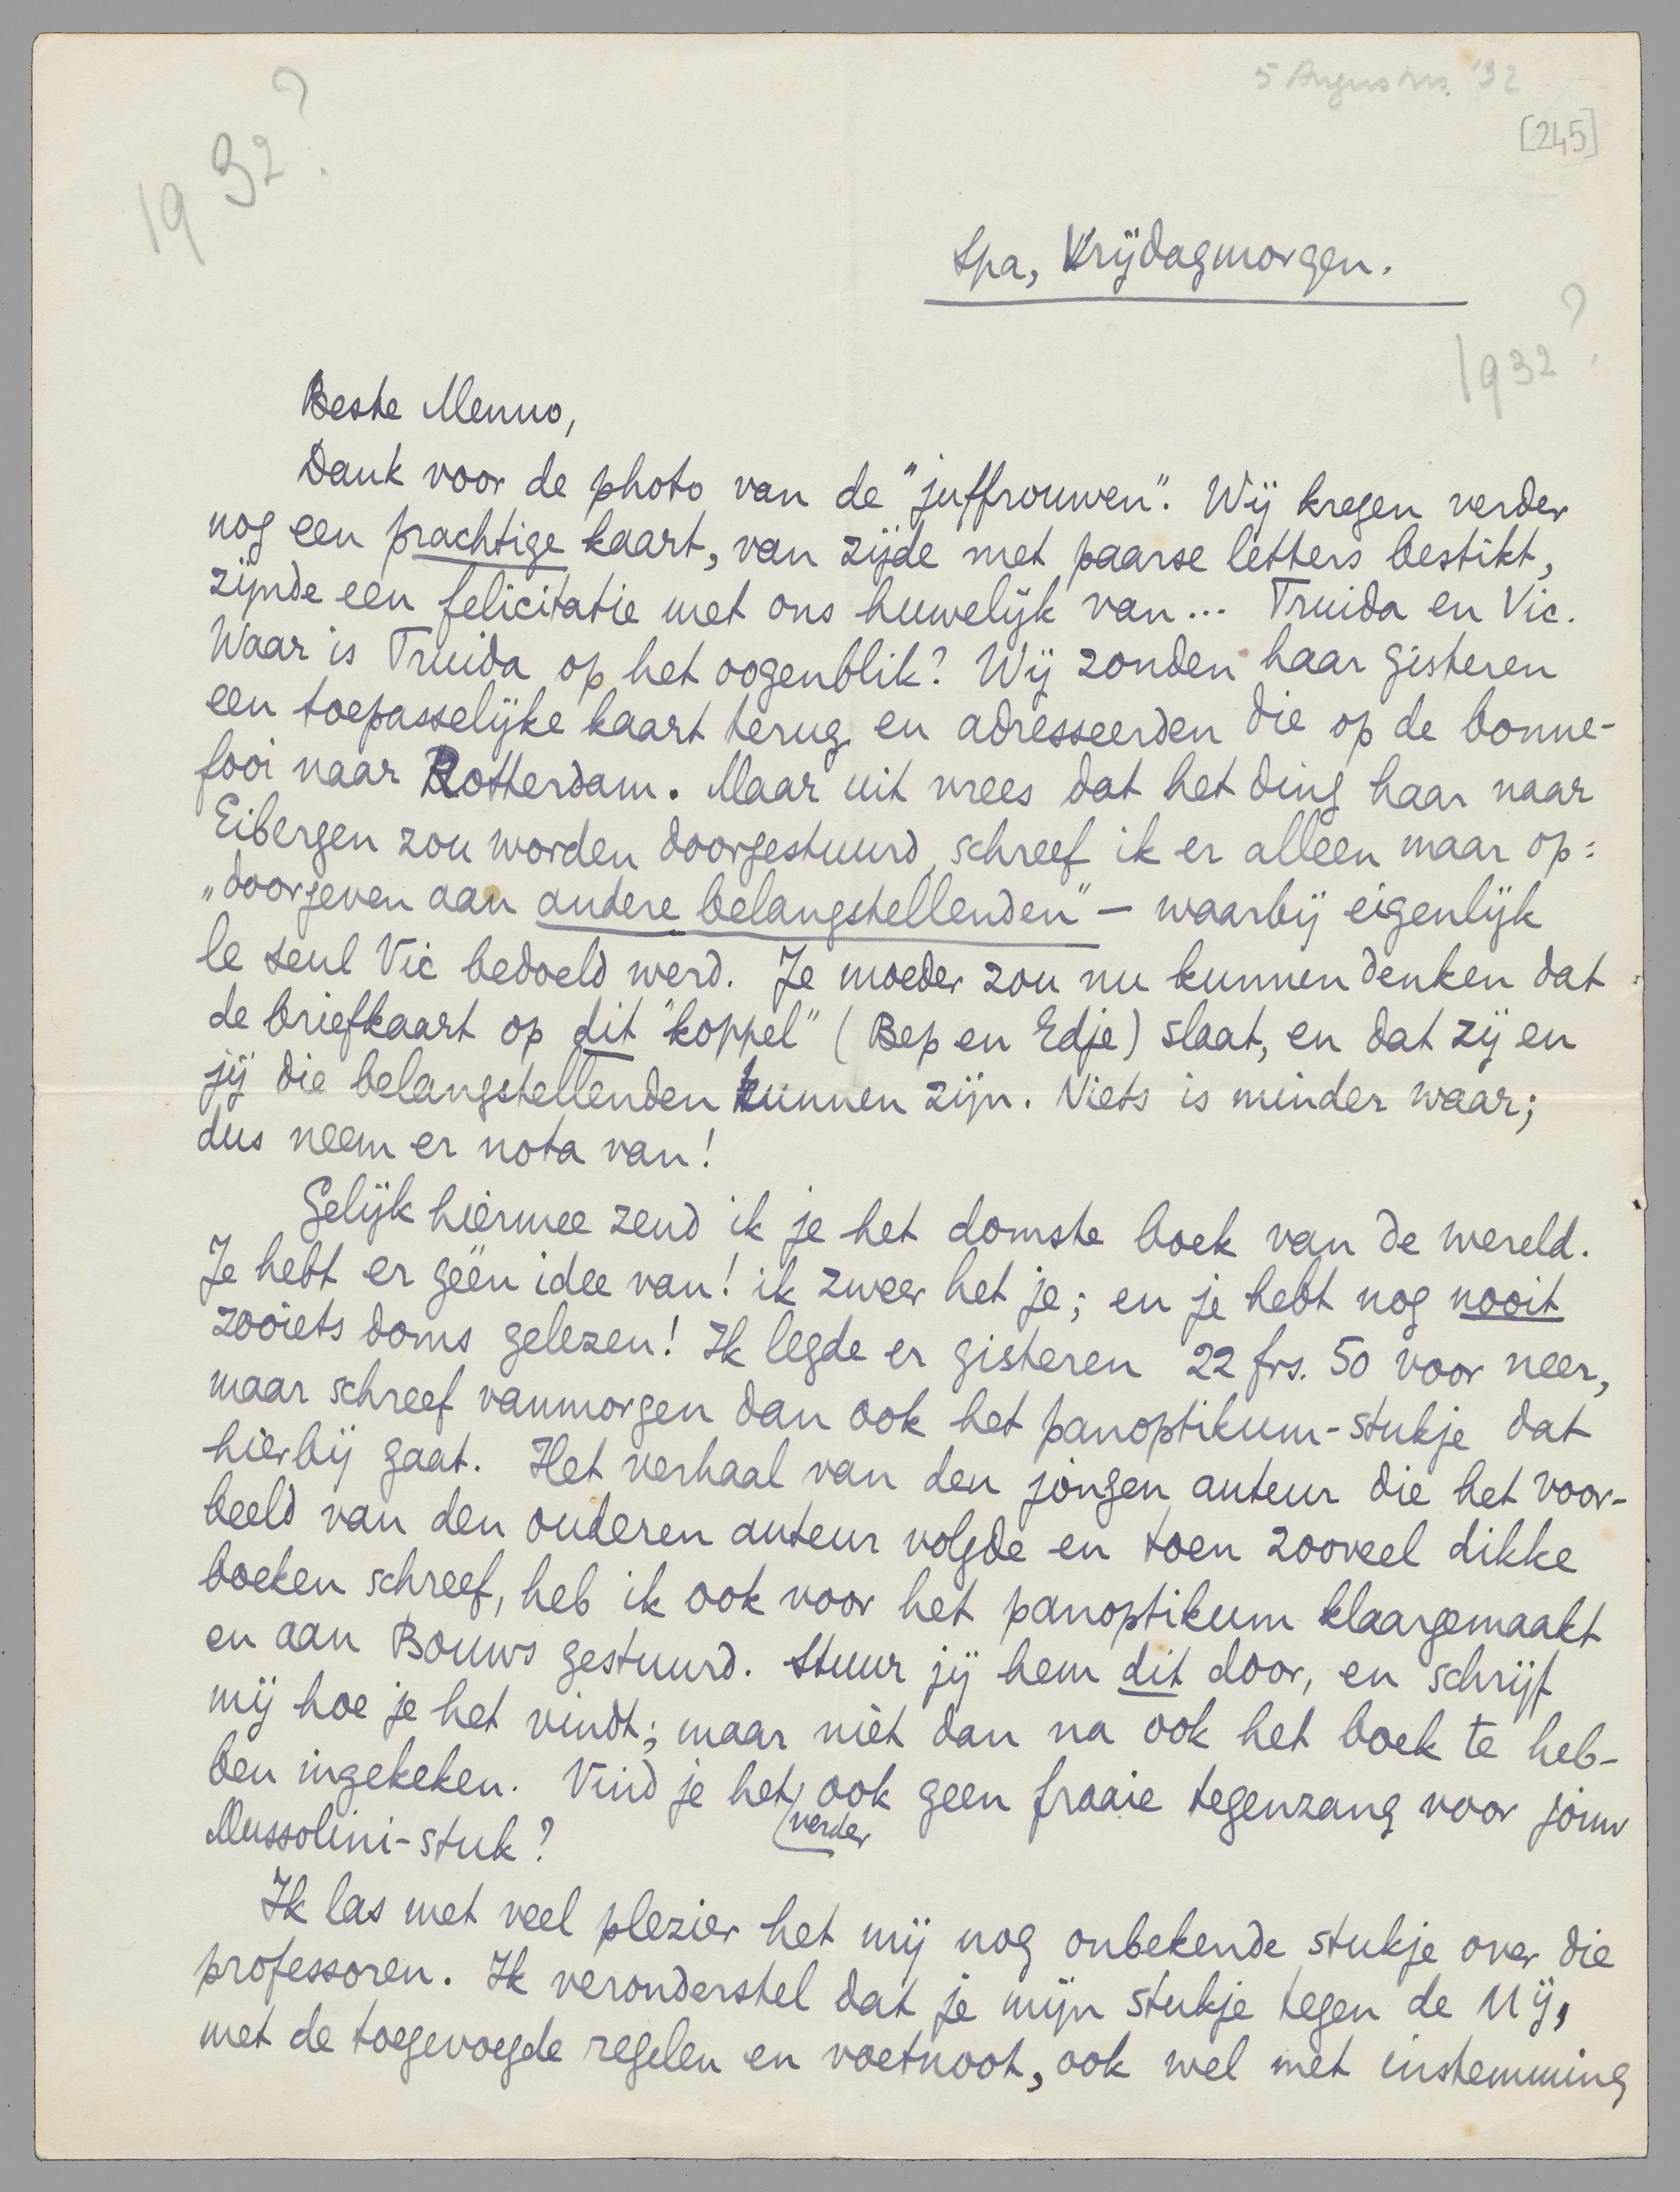 5 Augustus. '32
[245]
1932?
Spa, Vrijdagmorgen.
1932?
Beste Menno,
Dank voor de photo van de "juffrouwen". Wij kregen verder
nog een prachtige kaart, van zijde met paarse letters bestikt,
zijnde een felicitatie met ons huwelijk van... Truida en Vic.
Waar is Truida op het oogenblik? Wij zonden haar gisteren
een toepasselijke kaart terug en adresseerden die op de bonne-
fooi naar Rotterdam. Maar uit vrees dat het ding haar naar
Eibergen zou worden doorgestuurd, schreef ik er alleen maar op:
„doorgeven aan andere belangstellenden" – waarbij eigenlijk
le seul Vic bedoeld werd. Je moeder zou nu kunnen denken dat
de briefkaart op dit "koppel" (Bep en Edje) slaat, en dat zij en
jij die belangstellenden kunnen zijn. Niets is minder waar;
dus neem er nota van!
Gelijk hiermee zend ik je het domste boek van de wereld.
Je hebt er géén idee van! ik zweer het je; en je hebt nog nooit
zooiets doms gelezen! Ik legde er gisteren 22 frs. 50 voor neer,
maar schreef vanmorgen dan ook het panoptikum-stukje dat
hierbij gaat. Het verhaal van den jongen auteur die het voor-
beeld van den ouderen auteur volgde en toen zooveel dikke
boeken schreef, heb ik ook voor het panoptikum klaargemaakt
en aan Bouws gestuurd. Stuur jij hem dit door, en schrijf
mij hoe je het vindt; maar niet dan na ook het boek te heb-
ben ingekeken. Vind je het verder ook geen fraaie tegenzang voor jouw
Mussolini-stuk?
Ik las met veel plezier het mij nog onbekende stukje over die
professoren. Ik veronderstel dat je mijn stukje tegen de Mij,
met de toegevoegde regelen en voetnoot, ook wel met instemming